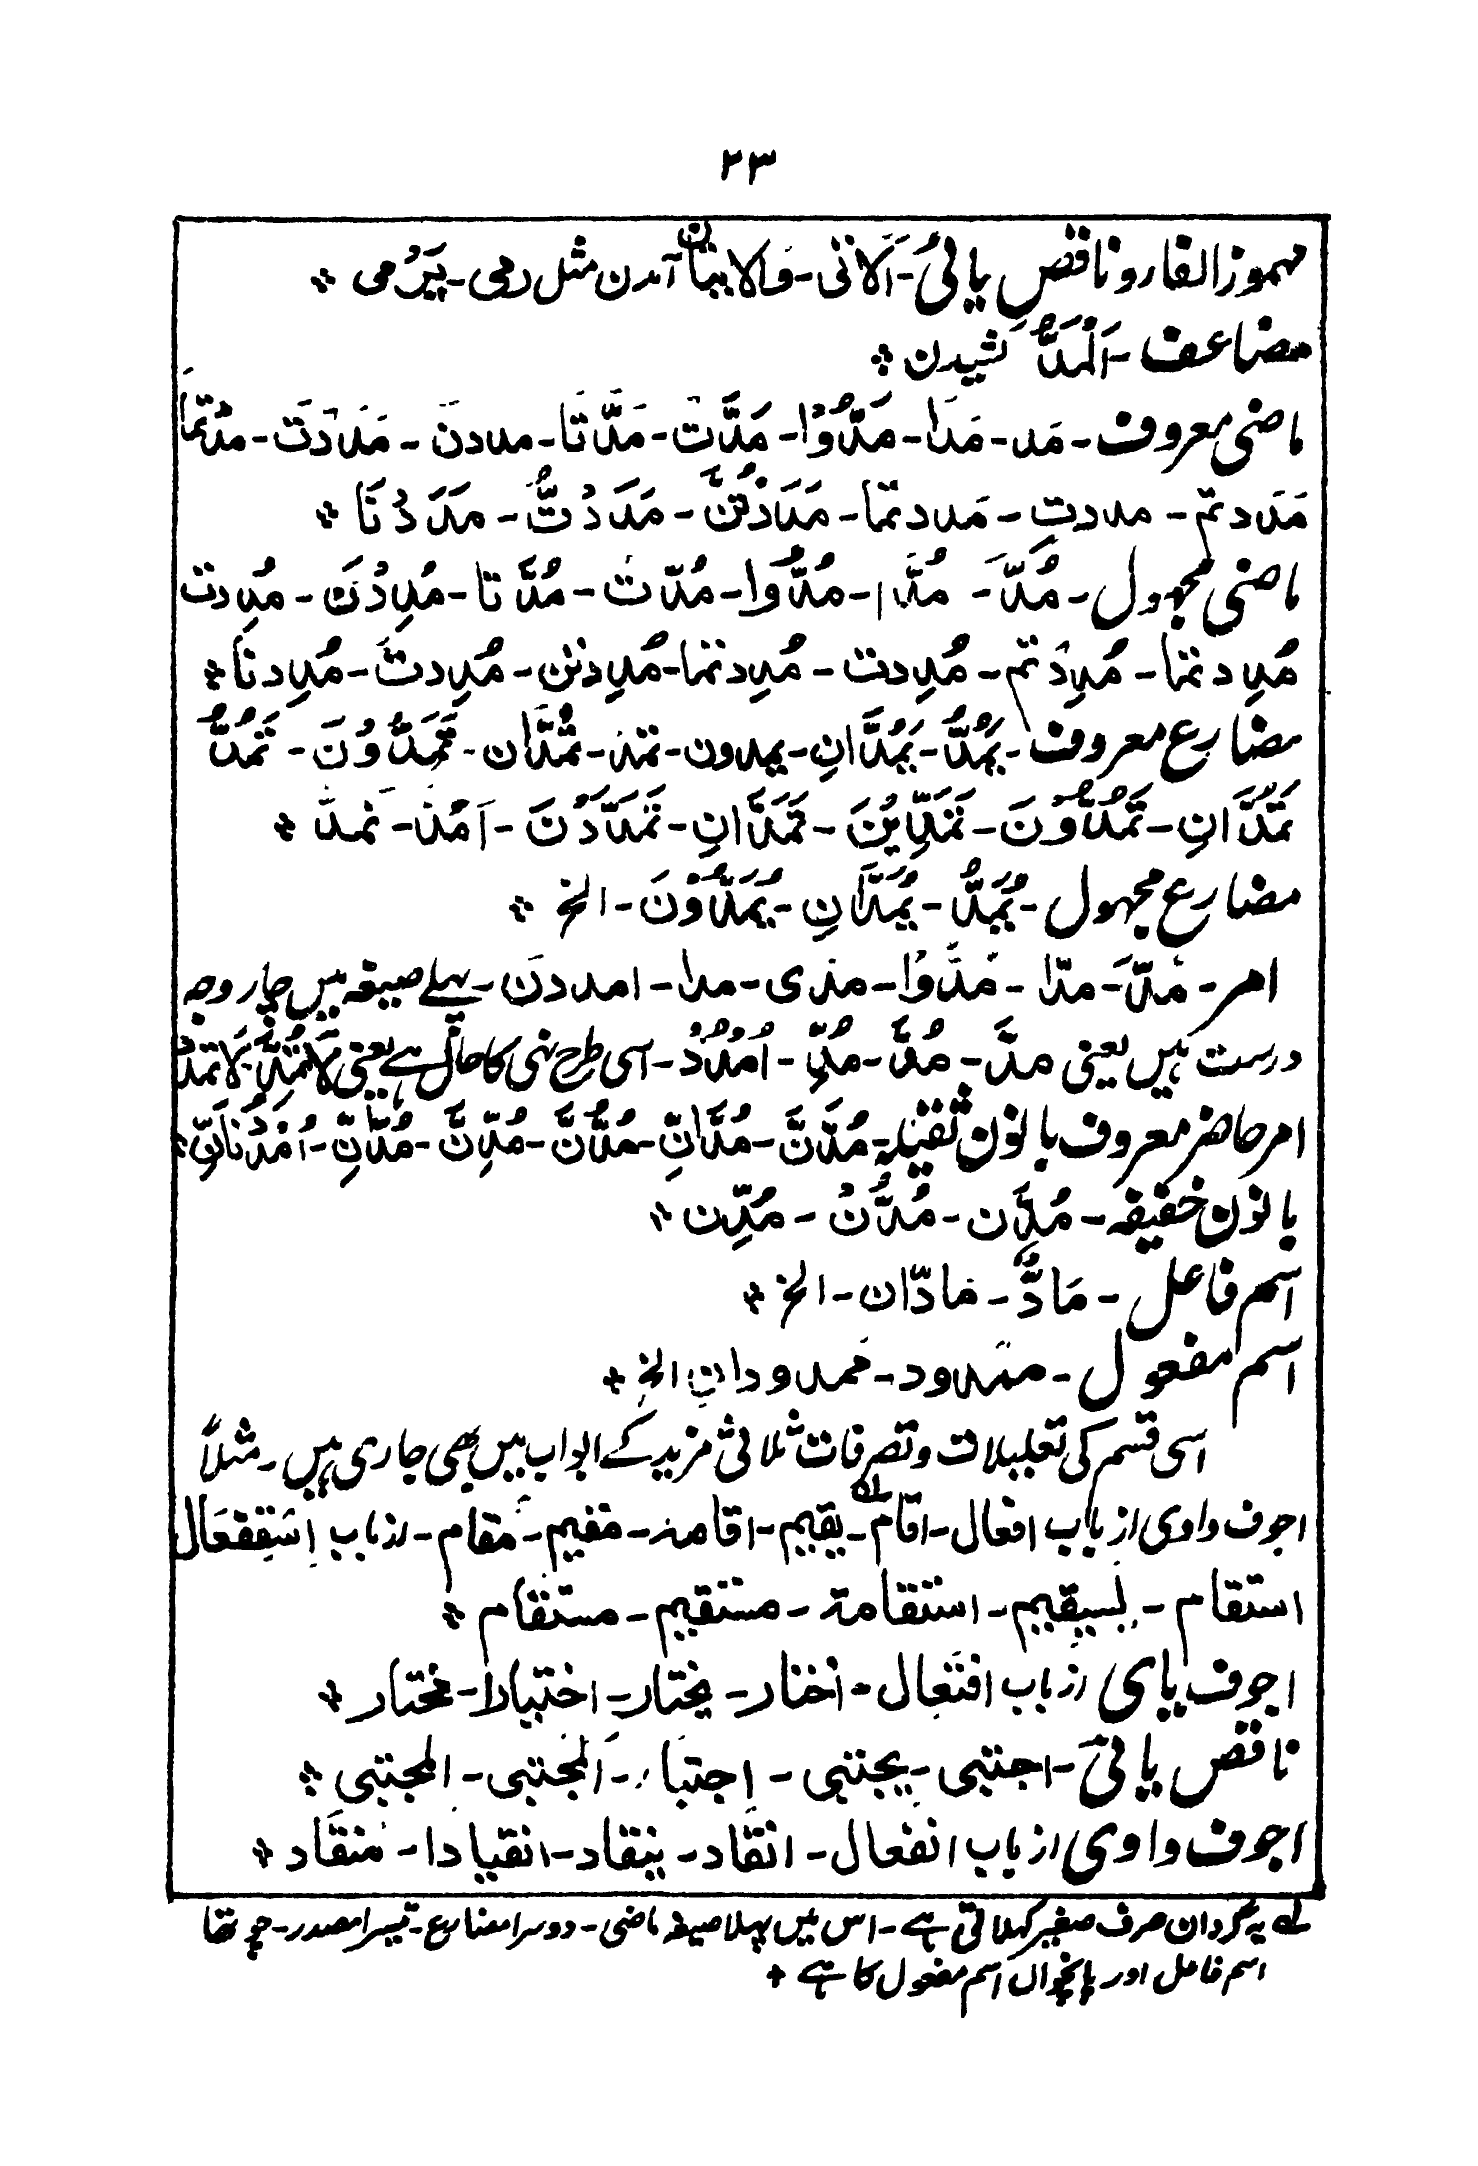 ٢٣
مهموز الفار و ناقص یائیُ - اَلاتی - والاتیان آمدن مثل رمی - یَرْمی ÷
مضاعف - اَلْمَدُّ کشیدن ÷
ماضی معروف - مَد - مَدا - مَدُّوْا - مَدَّت - مَدَّتَا - مددن - مَدَدْتَ - مددتما
مَدَدتم - مددتِ - مَددتما - مَدَدْتُنَّ - مَدَدْتُّ - مَدَدْنَا ÷
ماضی مجہول - مُدَّ - مُدَّا - مُدُّوا - مُدّت - مُدَّتا - مُدِدْنَ - مُدِدت
مُدِدتما - مُدِدْتم - مُدِدت - مُدِدتما - مُدِدتن - مُدِدتُ - مُدِدنا ÷
مضارع معروف - یَمُدُّ - یَمُدَّانِ - یمدون - تمد - تَمُدَّان - تَمُدُّوْنَ - تَمُدُّ
تَمُدَّانِ - تَمُدُّوْنَ - تَمُدِّیْنَ - تَمُدَّانِ - تَمْدُدْنَ - اَمُدُ - نَمدُّ ÷
مضارع مجہول - یُمَدُّ - یُمَدَّانِ - یُمَدُّوْنَ - الخ ÷
امر - مُدَّ - مدّا - مُدُّوْا - مدی - مدا - امددن - پہلے صیغہ میں چار وجہ
درست ہیں یعنی مدَّ - مُدُّ - مُدِّ - اُمْدُدْ - اسی طرح نہی کا حال ہے یعنی لَا تَمُدَّ لَا تمدُّ
امر حاضر معروف با نون ثقیلہ - مُدَّنَّ - مُدَّانِّ - مُدُّنَّ - مُدِّنَّ - مُدَّانِّ - اُمْدُدْنَانِّ ÷
با نون خفیفہ - مُدَّن - مُدُّنْ - مُدِّن ÷
اسم فاعل - مَادٌّ - مادّان - الخ ÷
اسم مفعول - ممدود - ممدودانِ الخ ÷
اسی قسم کی تعلیلات و تصرفات ثلاثی مزید کے ابواب میں بھی جاری ہیں - مثلاً
اجوف واوی از باب افعال - اقام - یقیم - اقامة - مقیم - مقام - از باب اِسْتِفْعَال
استقام - یستقیم - استقامة - مستقیم - مستقام ÷
اجوف یای از باب افتعال - اختار - یختار - اختیارا - مختار ÷
ناقص یائی - اجتبی - یجتبی - اِجتباء - المجتبی - المجتبی ÷
اجوف واوی از باب انفعال - انقاد - ینقاد - انقیادا - منقاد ÷
لہ یہ گردان صرف صغیر کہلاتی ہے - اس میں پہلا صیغہ ماضی - دوسرا مضارع - تیسرا مصدر - چوتھا
اسم فاعل اور پانچواں اسم مفعول کا ہے ÷